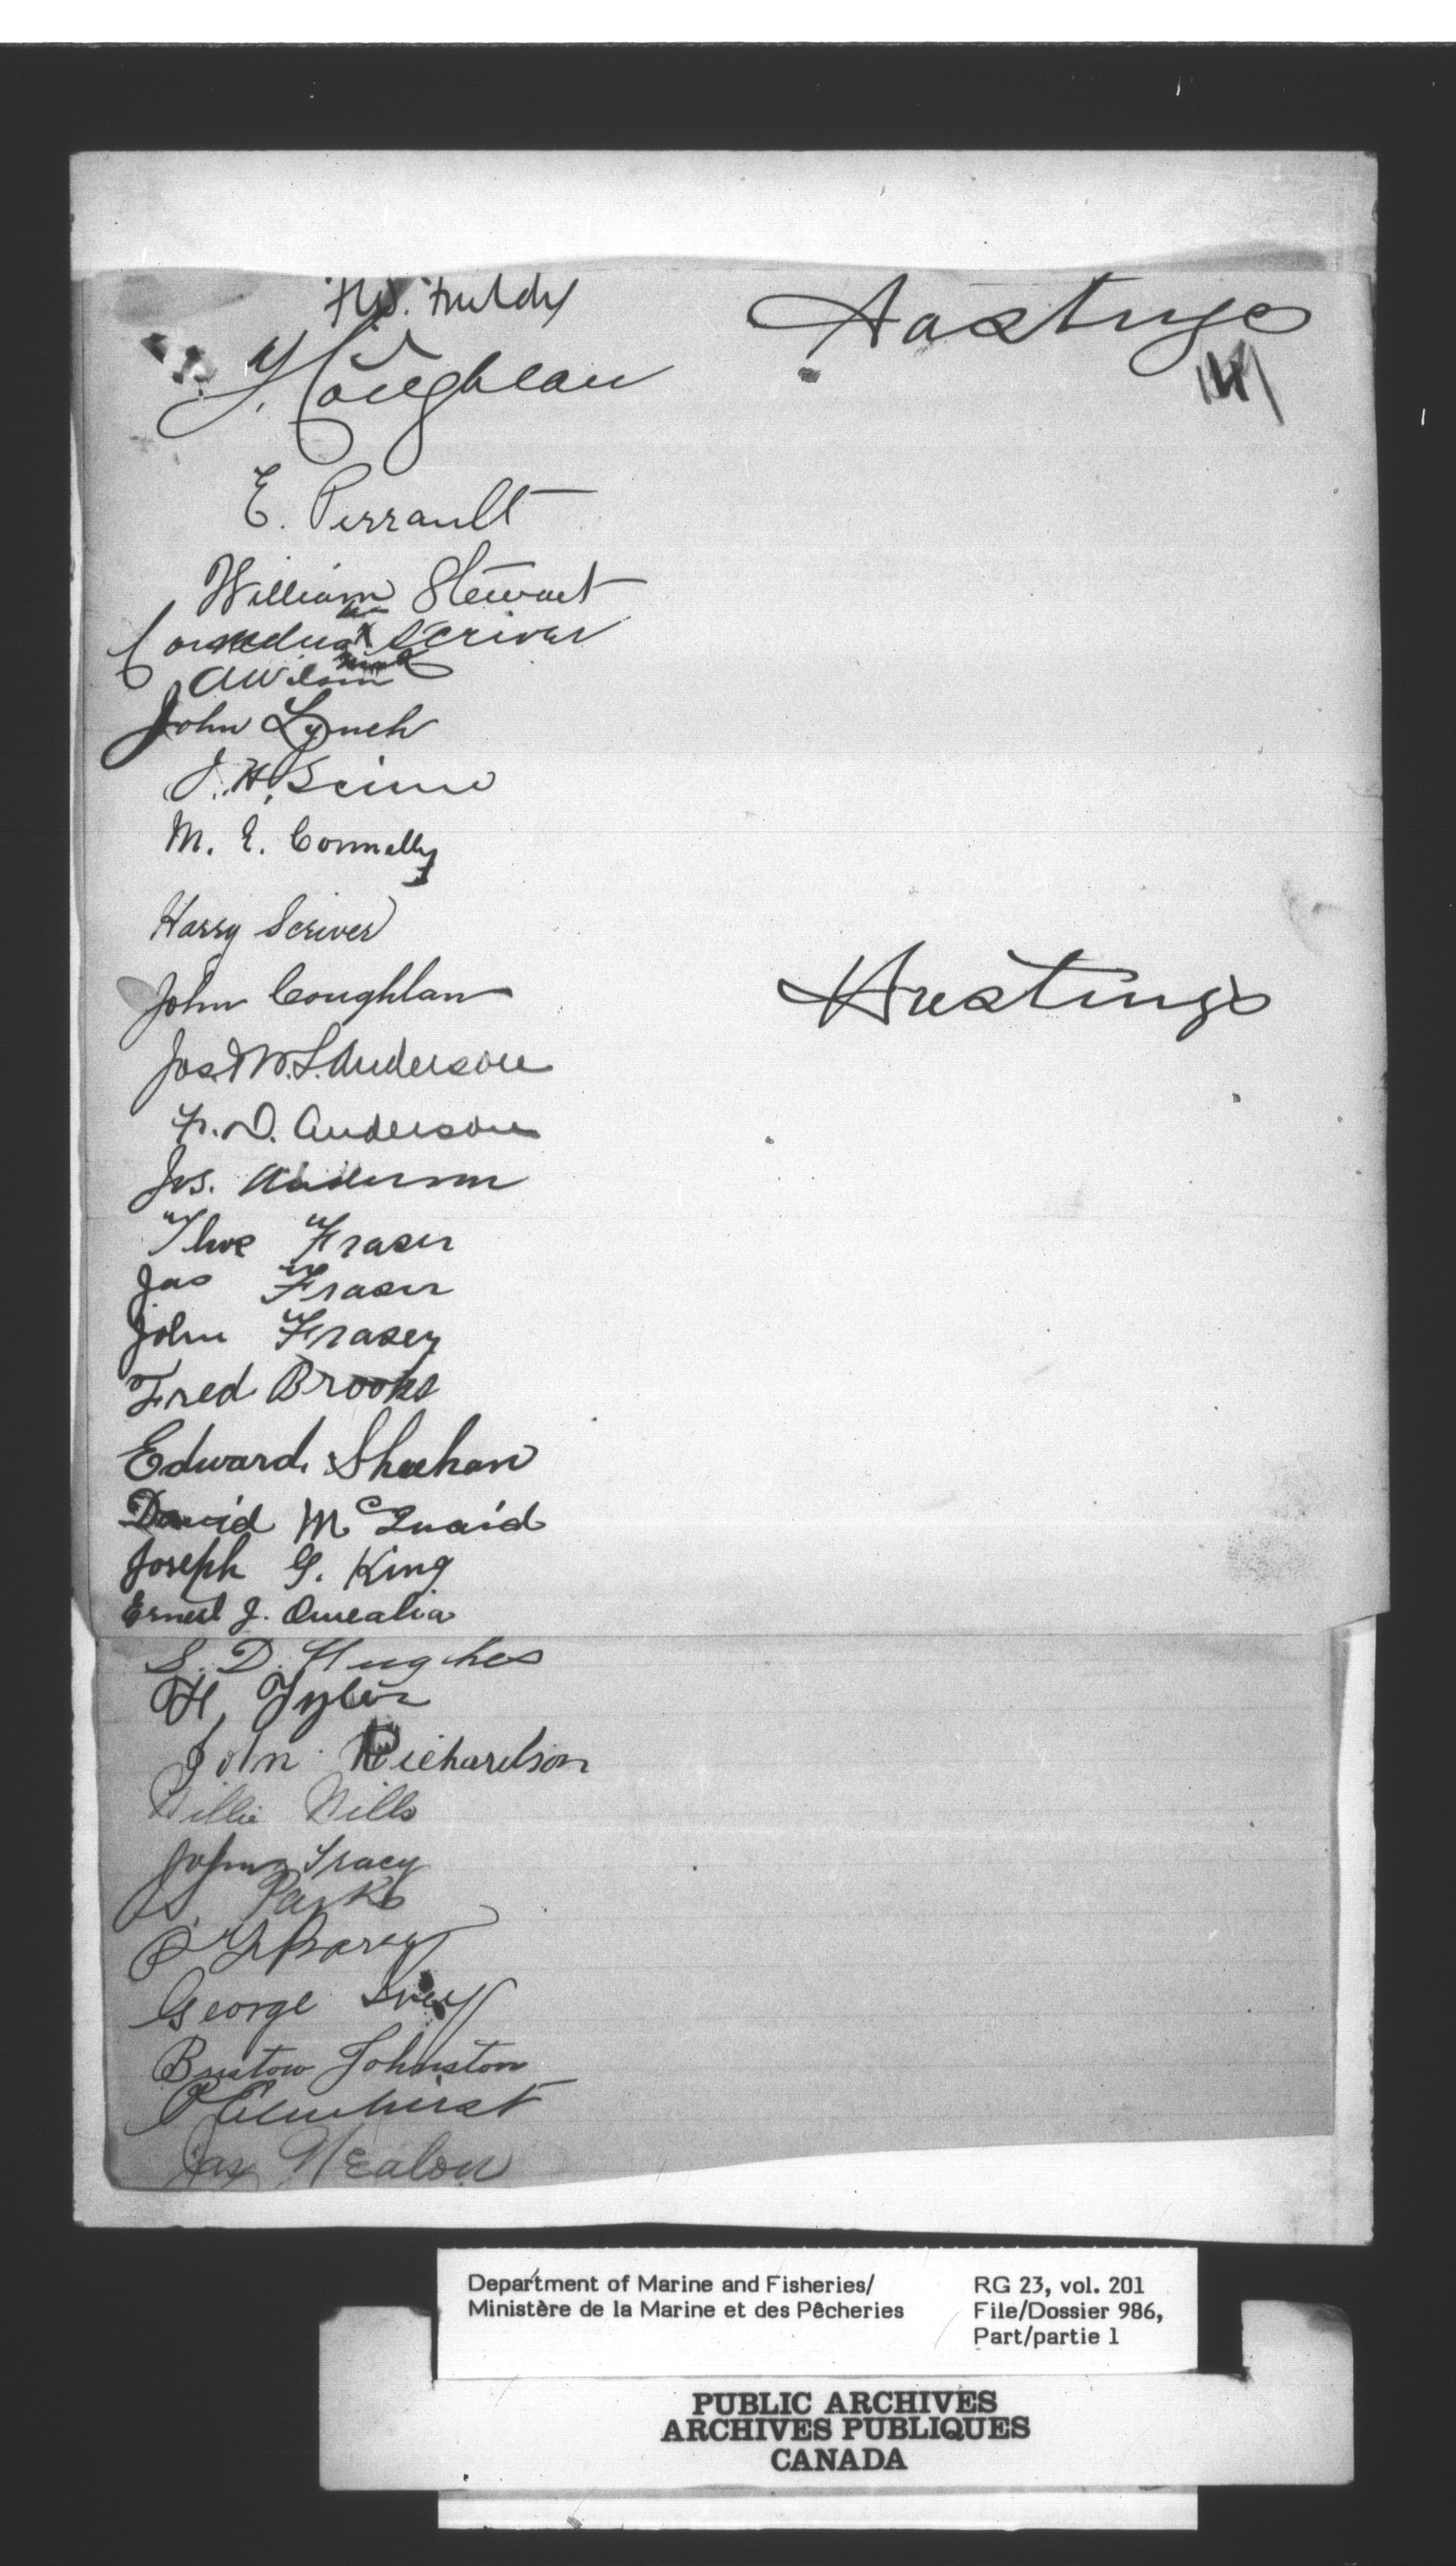 Hastings
Coughlan
E. Perrault
William Stewart
his
Cornelius X Scriver
mark
A Wilson
John Lynch
J. H.
M. E. Connelly
Harry Scriver
John Coughlan Hastings
Jos. W. L. Anderson
F. D. Anderson
Jos. Anderson
Thos Fraser
Jas Fraser
John Fraser
Fred Brooks
Edward Sheehan
David McQuaid
Joseph G. King
Ernest J. Omealia
S. D. Hughes
H. Tyler
John Richardson
Willie Wills
John Tracy
Parks
George Ivey
Bristow Johnston
P Elmhirst
Jas Nealon
Department of Marine and Fisheries/ RG 23, vol. 201
Ministère de la Marine et des Pêcheries File/Dossier 986,
Part/partie 1
PUBLIC ARCHIVES
ARCHIVES PUBLIQUES
CANADA